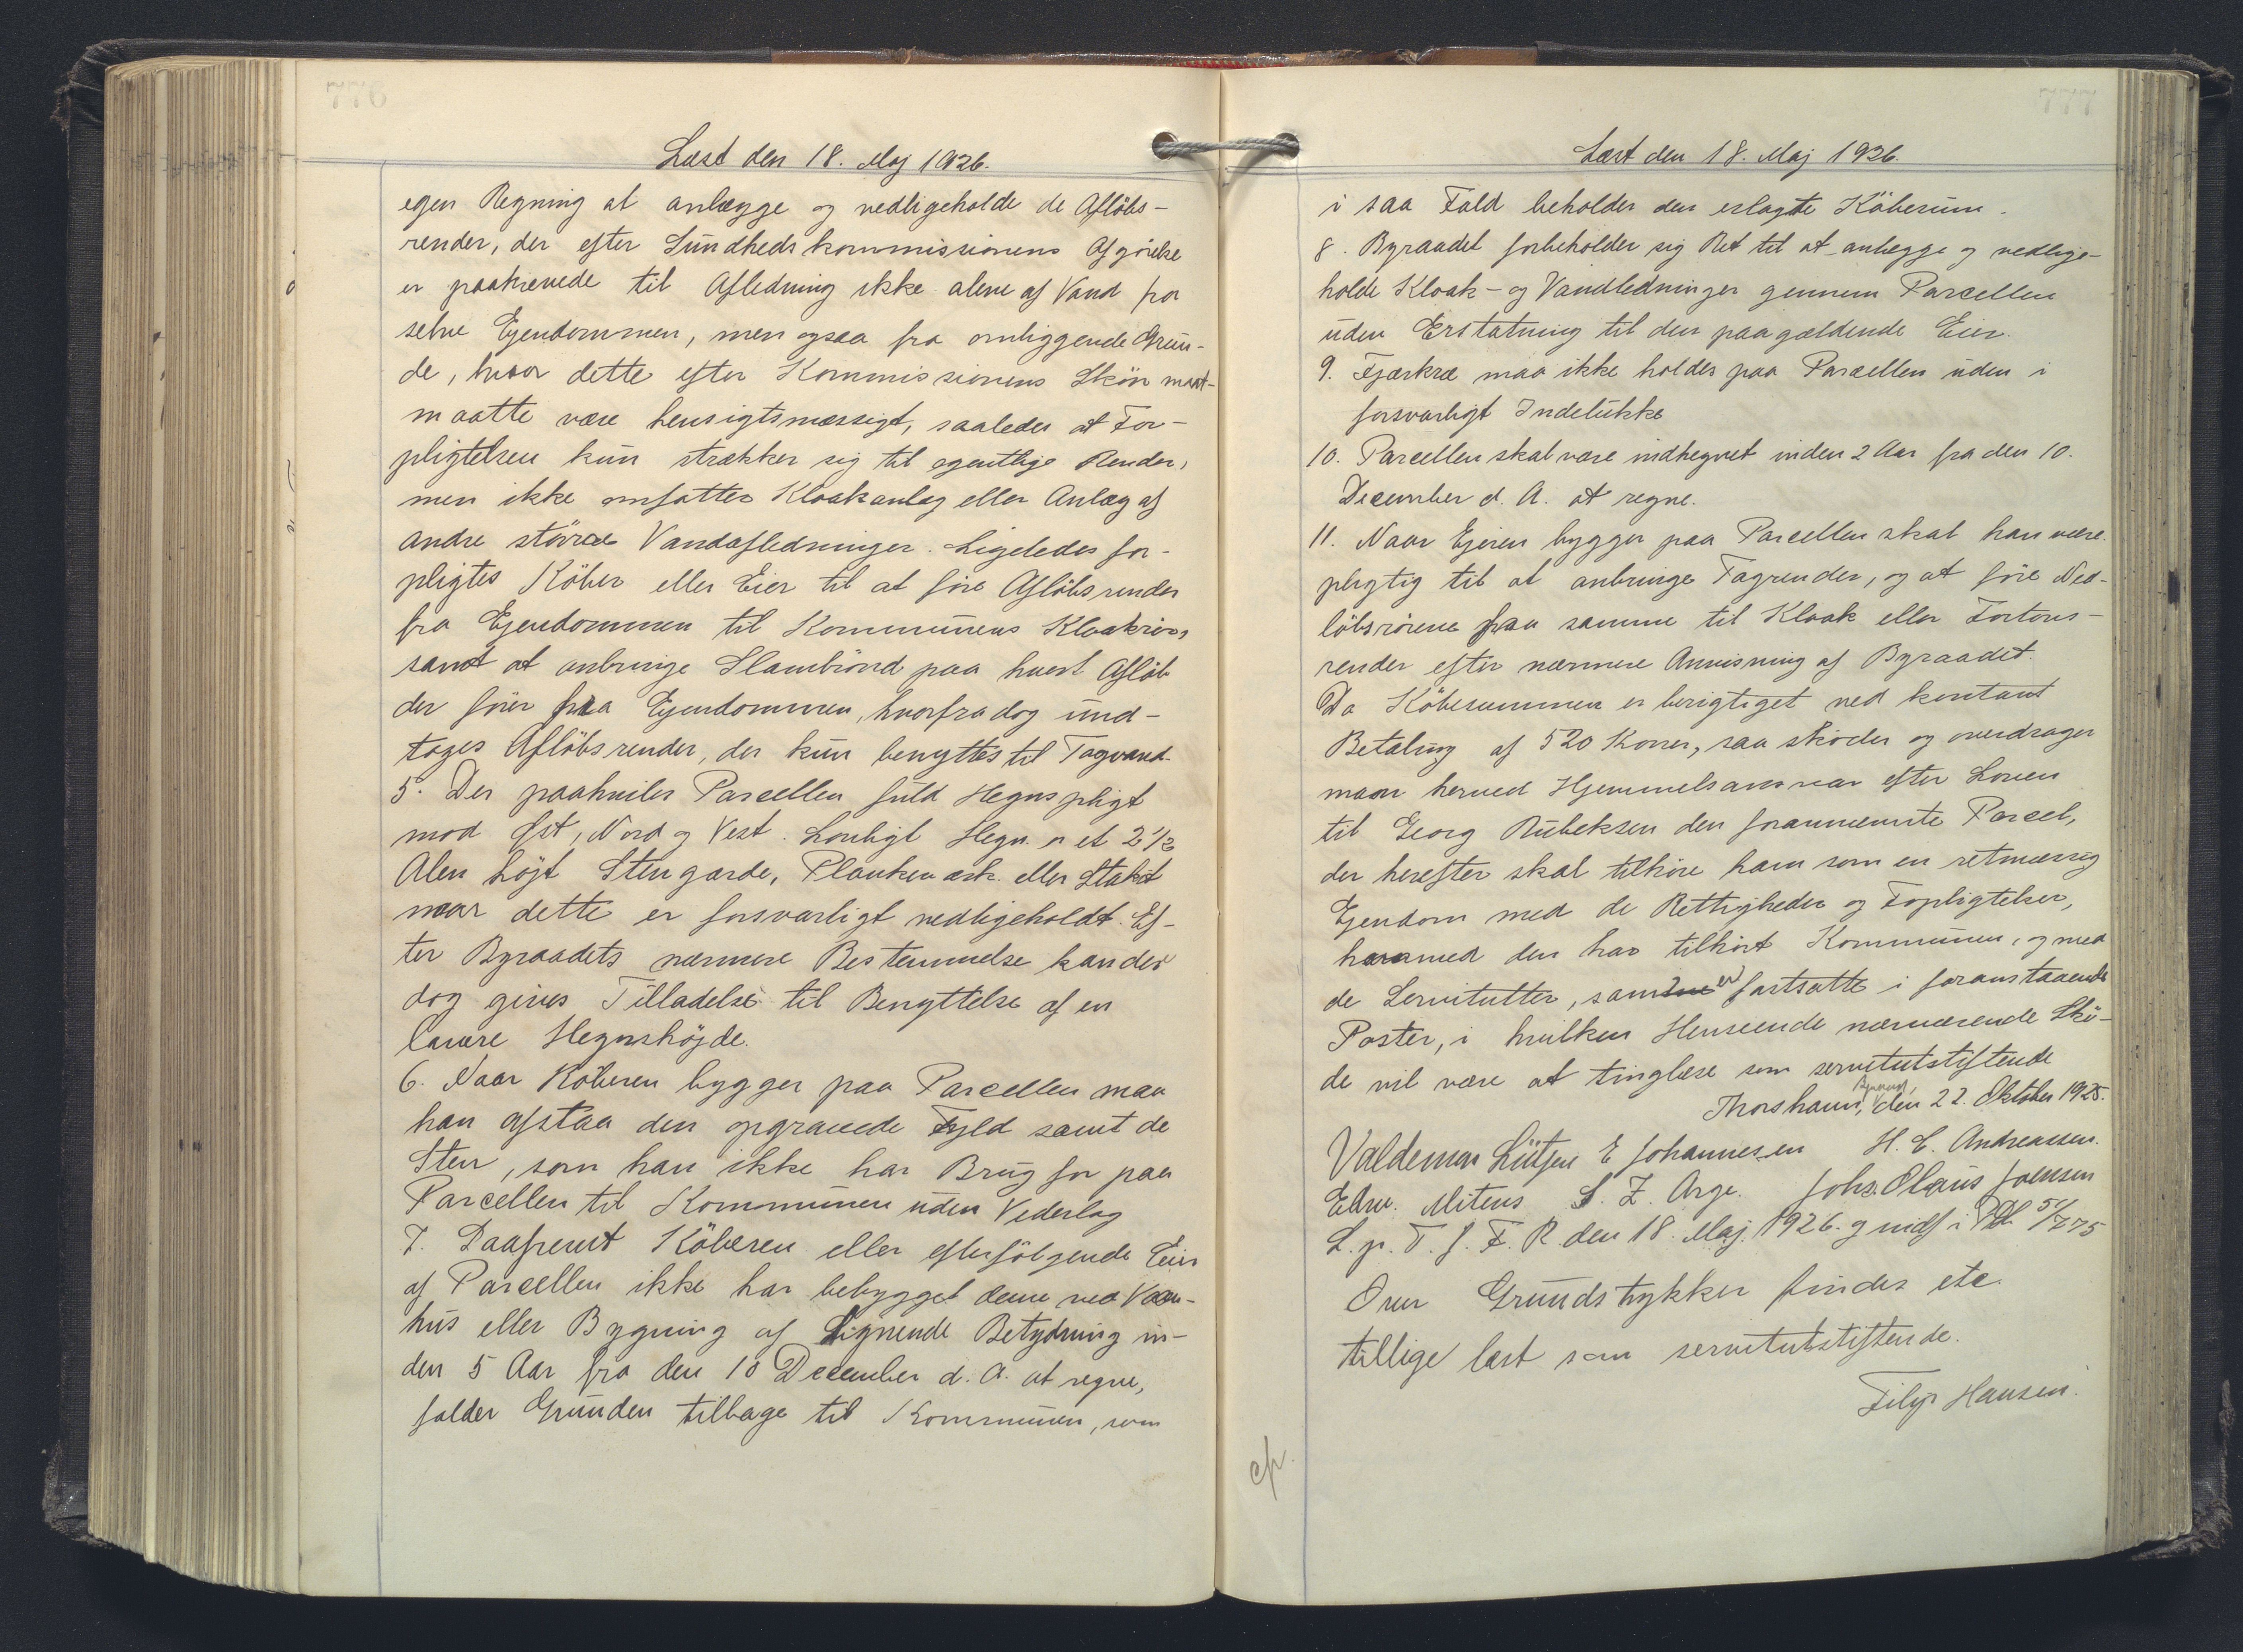 776
Læst den 18. Maj 1926.
egen Regning at anlægge og vedligeholde de Afløbs-
render, der efter Sundhedskommissionens Afgörelse
er paakrævede til Afledning ikke alene af Vand fra
selve Ejendommen, men ogsaa fra omliggende Grun-
de, hvor dette efter Kommissionens Skön maat-
maatte være hensigtsmæssigt, saaledes at For-
pligtelsen kun strækker sig til egentlige Render,
men ikke omfatter Kloakanlæg eller Anlæg af
andre större Vandafledninger. Ligeledes for-
pligtes Köber eller Eier til at före Aflöbsrender
fra Ejendommen til Kommunens Kloakrör,
samt at anbringe Slambrönd paa hvert Aflöb
der förer fra Ejendommen, hvorfra dog und-
tages Aflöbsrender, der kun benyttes til Tagvand.
5. Der paahviler Parcellen fuld Hegnspligt
mod Øst, Nord og Vest. Lovligt Hegn er et 2 1/2
Alen höjt Stengærde, Plankeværk eller Stakit
naar dette er forsvarligt vedligeholdt. Ef-
ter Byraadets nærmere Bestemmelse kan der
dog gives Tilladelse til Benyttelse af en
lavere Hegnshöjde.
6. Naar Köberen bygger paa Parcellen maa
han afstaa den opgravede Fyld samt de
Sten, som han ikke har Brug for paa
Parcellen til Kommunen uden Vederlag
7. Saafremt Köberen eller efterfölgende Eier
af Parcellen ikke har bebygget denne med Vaan-
hus eller Bygning af lignende Betydning in-
den 5 Aar fra den 10 December d. A. at regne,
falder Grunden tilbage til Kommunen, som
777
Læst den 18. Maj 1926.
i saa Fald beholder den erlagte Köbesum.
8. Byraadet forbeholder sig Ret til at anlægge og vedlige-
holde Kloak- og Vandledninger gennem Parcellen
uden Erstatning til den paagældende Eier.
9. Fjærkræ maa ikke holdes paa Parcellen uden i
forsvarligt Indelukke
10. Parcellen skal være indhegnet inden 2 Aar fra den 10.
December d. A. at regne.
11. Naar Ejeren bygger paa Parcellen skal han være
pligtig til at anbringe Tagrender, og at före Ned-
löbsrörene fra samme til Kloak eller Fortovs-
render efter nærmere Anvisning af Byraadet.
Da Köbesummen er berigtiget ved kontant
Betaling af 520 Kroner, saa sköder og overdrager
man herved Hjemmelsansvar efter Loven
til Georg Rubeksen den forannævnte Parcel,
der herefter skal tilhöre ham som en retmæssig
Ejendom med de Rettigheder og Fopligtelser,
hvormed den har tilhört Kommunen, og med
de Servitutter, som er fastsatte i foranstaaende
Poster, i hvilken Henseende nærværende Skö-
de vil være at tinglæse som servitutstiftende
Thorshavn, Byraad, den 22. Oktober 1925.
Valdemar Lützen E Johannesen H. C. Andreassen.
Edw. Mitens S. Z. Arge. Johs. Olaüs Joensen
L. p. T. f. F. R. den 18. Maj. 1926. og indf i Pbl 54/775
Over Grundstykker findes etc.
tillige læst som servitutstiftende.
Filip Hansen.
cfr.